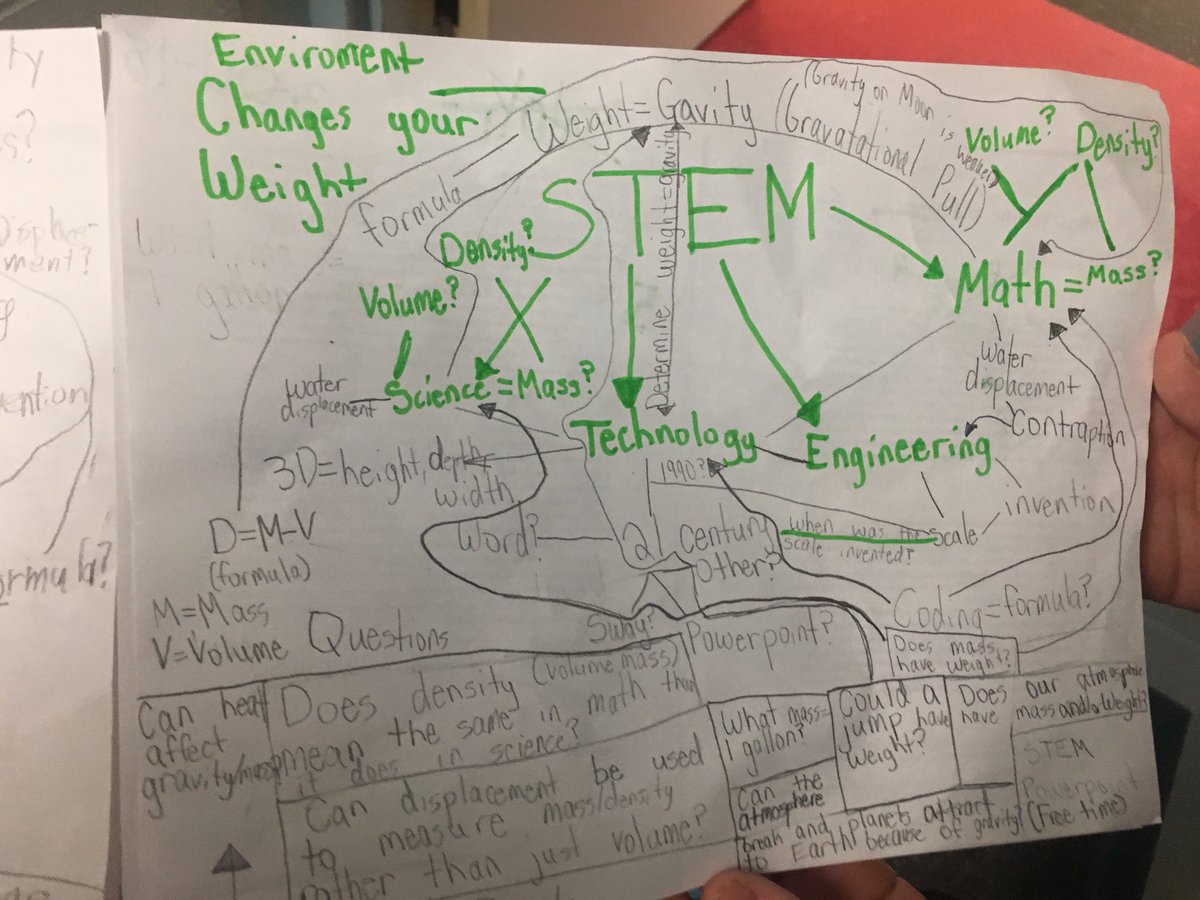 Enviroment
Changes your
Weight
Weight = Gavity (Gravatational Pull)
(Gravity on Moon is weaker)
formula
STEM
Determine weight=gravity
Volume?
Density?
Math = Mass?
Density?
Volume?
Science = Mass?
water
displacement
Technology
Engineering
water
displacement
Contraption
invention
3D=height, depth
width
1990?
Word?
21 century
Other?
when was the
scale invented?
Scale
D=M-V
(formula)
M=Mass
V=Volume
Questions
Sway?
Powerpoint?
Coding=formula?
Does mass
have weight?
Can heat
affect
gravity/mass
Does density (volume mass)
mean the same in math than
it does in science?
Can displacement be used
to measure mass/density
rather than just volume?
What mass=
1 gallon?
Could a
jump have
weight?
Does our atmosphere
have mass and/or weight?
Can the
atmosphere
break and planets attract
to Earth because of gravity?
STEM
Powerpoint
(Free time)
ention
ormula?